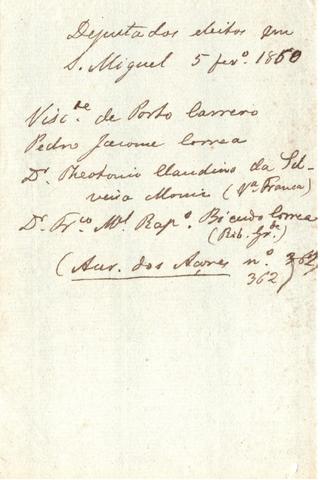 Deputados eleitos em
S. Miguel 5 fevº. 1860
Visc.de de Porto Carrero
Pedro Jacome Correa
Dr. Theotonio Claudino da Sil-
veira Moniz (Vª Franca)
Dr. Frco Mel Rapº. Bicudo Correa
(Rib. Grde)
(Aur. dos Açores nº 362)
362